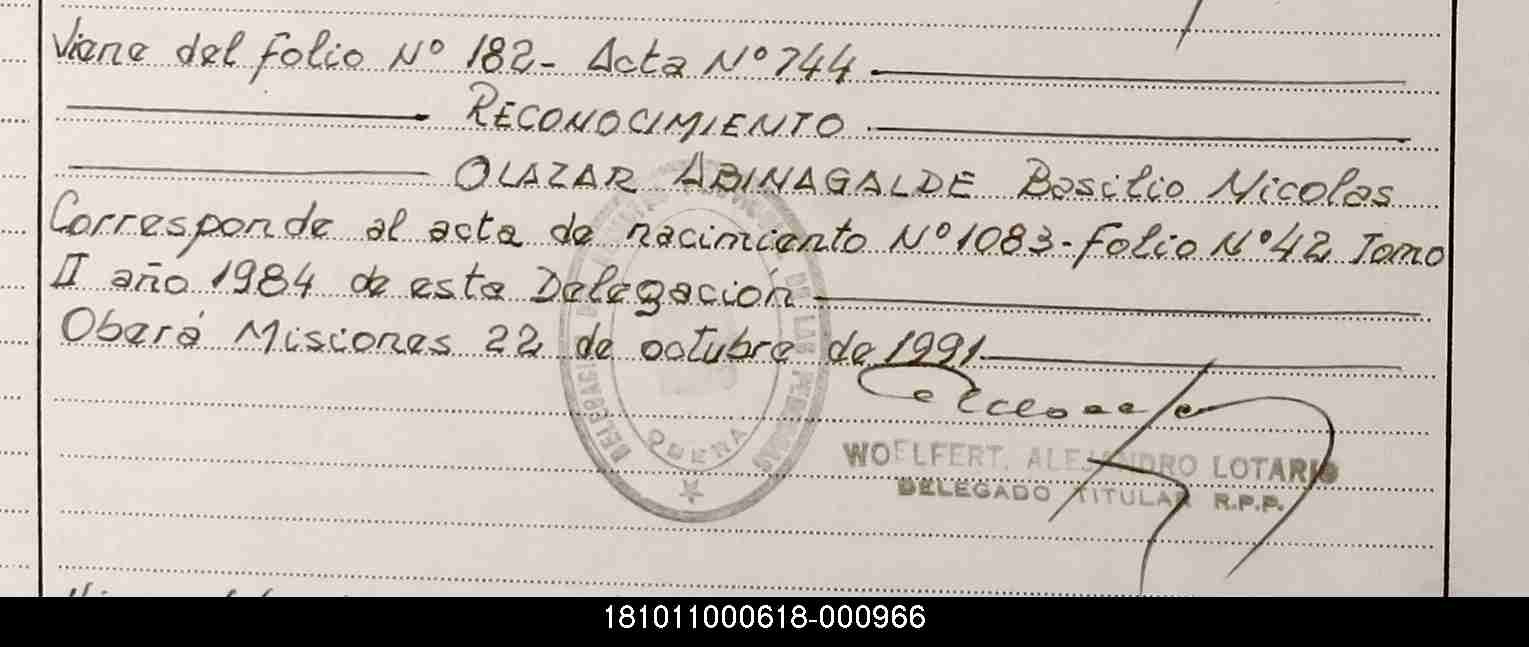 Viene del folio Nº 182- Acta Nº 744
RECONOCIMIENTO
OLAZAR ABINAGALDE Basilio Nicolas
Corresponde al acta de nacimiento Nº 1083- folio Nº 42 Tomo
II año 1984 de esta Delegación
Oberá Misiones 22 de octubre de 1991
OBERA
WOELFERT, ALEJANDRO LOTARIO
DELEGADO TITULAR R.P.P.
181011000618-000966